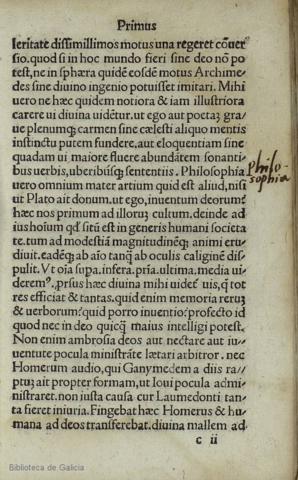 Primus
leritate dissimillimos motus una regeret cõuer
sio. quod si in hoc mundo fieri sine deo nõ po
test, ne in sphæra quidẽ eosdẽ motus Archime
des sine diuino ingenio potuisset imitari. Mihi
uero ne hæc quidem notiora & iam illustriora
carere ui diuina uidẽtur. ut ego aut poetaʒ gra
ue plenumqʒ carmen sine cælesti aliquo mentis
instinctu putem fundere, aut eloquentiam sine
quadam ui maiore fluere abundãtem sonanti
bus uerbis, uberibusqʒ sententiis. Philosophia
uero omnium mater artium quid est aliud, nisi
ut Plato ait donum. ut ego, inuentum deorum?
hæc nos primum ad illoruʒ cultum. deinde ad
ius hoĩum qď sitũ est in generis humani societa
te. tum ad modestiã magnitudinẽqʒ animi eru
diuit. eadẽqʒ ab aĩo tanqʒ̃ ab oculis caliginẽ dis
pulit. Vt oĩa supa. infera. prĩa. ultima. media ui
derem⁹. ꝓrsus hæc diuina mihi uidet̃ uis, q̃ tot
res efficiat & tantas. quid enim memoria rerũ
& uerborum? quid porro inuentio? profecto id
quod nec in deo quicqʒ̃ maius intelligi potest.
Non enim ambrosia deos aut nectare aut iu
uentute pocula ministrãte lætari arbitror. nec
Homerum audio, qui Ganymedem a diis ra
ptuʒ ait propter formam, ut Ioui pocula admi
nistraret. non iusta causa cur Laumedonti tan
ta fieret iniuria. Fingebat hæc Homerus & hu
mana ad deos transferebat. diuina mallem ad
c ii
Philo-
sophia
Biblioteca de Galicia